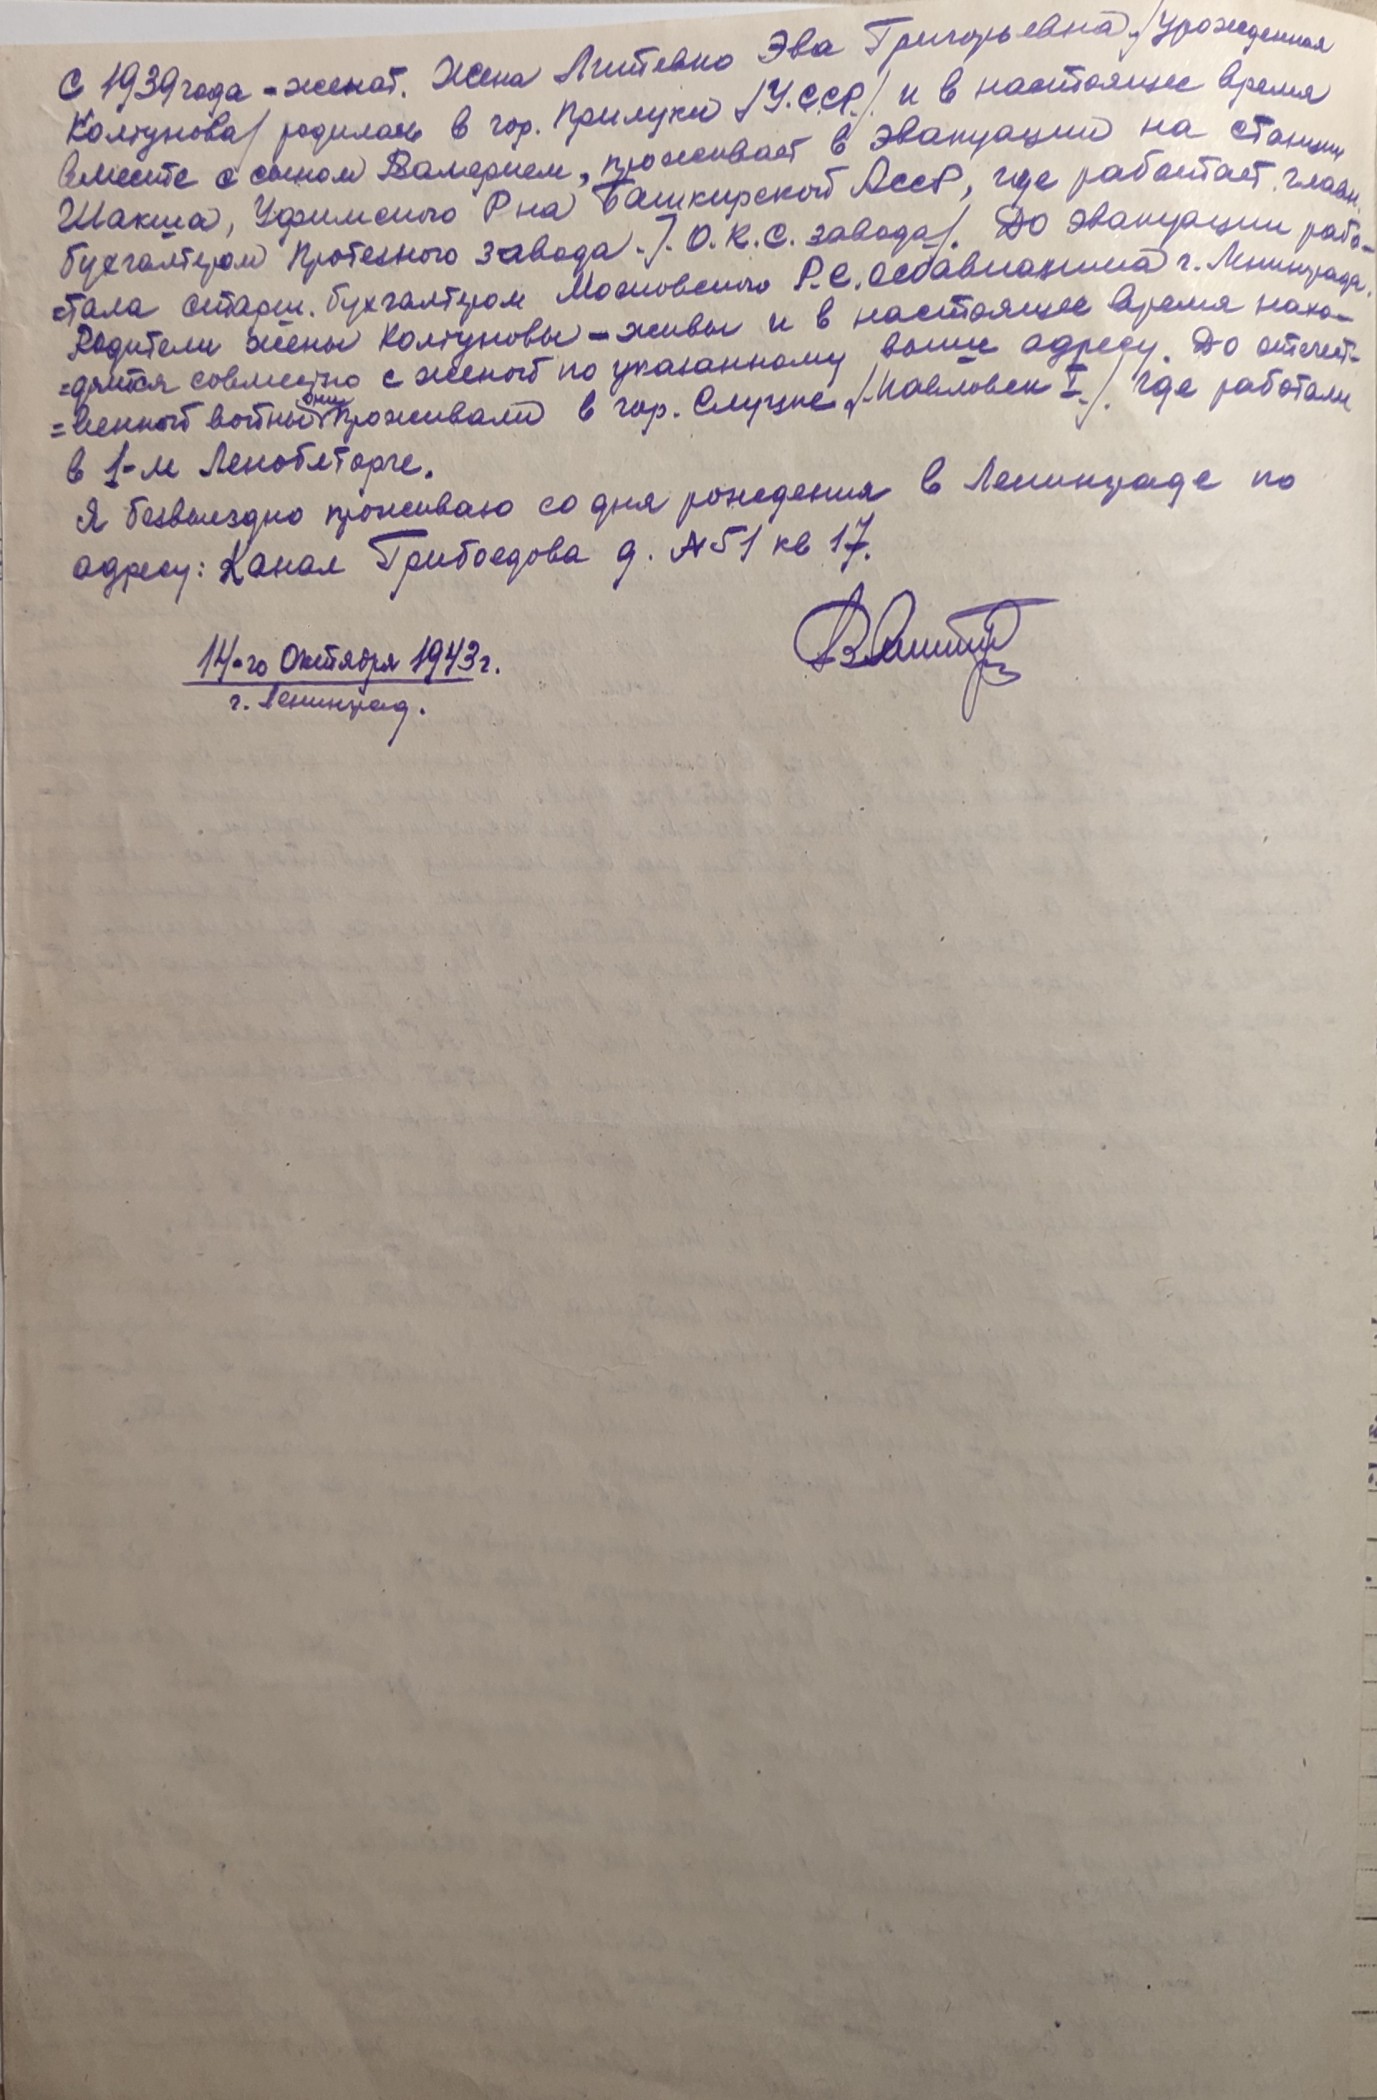 С 1939 года - женат. Жена Литевко Эва Григорьевна /урожденная
Колтунова/ родилась в гор. Прилуки /У.С.С.Р./ и в настоящее время
вместе с сыном Валерием, проживает в эвакуации на станции
Шакша, Уфимского Р-на Башкирской АССР, где работает главн.
бухгалтером Протезного завода /. О.К.С. завода/. До эвакуации рабо-
=тала старш. бухгалтером Московского Р.С. Осоавиахима г. Ленинграда.
Родители жены Колтуновы - живы и в настоящее время нахо-
=дятся совместно с женой по указанному выше адресу. До отечест-
=венной войны они проживали в гор. Слуцке /Павловск I/. где работали
в 1-м Леноблторге.
Я безвыездно проживаю со дня рождения в Ленинграде по
адресу: Канал Грибоедова д. №51 кв 17.
14-го Октября 1943 г.
г. Ленинград.